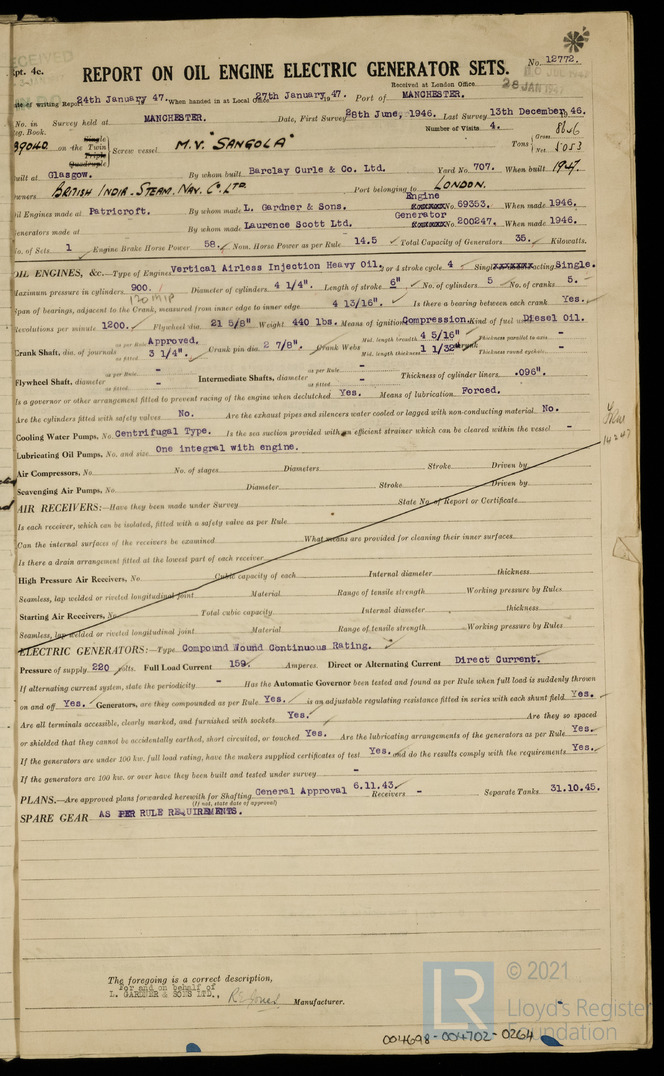 RECEIVED
Rpt. 4c.
REPORT ON OIL ENGINE ELECTRIC GENERATOR SETS. No. 12772.
Received at London Office 28 JAN 1947
Date of writing Report 24th January 19 47. When handed in at Local Office 27th January 19 47. Port of MANCHESTER.
No. in Survey held at MANCHESTER. Date, First Survey 28th June, 1946. Last Survey 13th December 19 46.
Reg. Book. Number of Visits 4.
39040 on the Single Twin Triple Quadruple Screw vessel M.V. "SANGOLA" Tons Gross 8646 Net 5053
Built at Glasgow. By whom built Barclay Curle & Co. Ltd. Yard No. 707. When built 1947.
Owners BRITISH INDIA STEAM NAV. Co. LTD. Port belonging to LONDON.
Oil Engines made at Patricroft. By whom made L. Gardner & Sons. Engine No. 69353. When made 1946.
Generators made at By whom made Laurence Scott Ltd. Generator No. 200247. When made 1946.
No. of Sets 1 Engine Brake Horse Power 58. Nom. Horse Power as per Rule 14.5 Total Capacity of Generators 35. Kilowatts.
OIL ENGINES, &c.—Type of Engines Vertical Airless Injection Heavy Oil. 2 or 4 stroke cycle 4 Single acting Single.
Maximum pressure in cylinders 900. Diameter of cylinders 4 1/4". Length of stroke 6" No. of cylinders 5 No. of cranks 5.
120 MIP
Span of bearings, adjacent to the Crank, measured from inner edge to inner edge 4 13/16". Is there a bearing between each crank Yes.
Revolutions per minute 1200. Flywheel dia. 21 5/8" Weight 440 lbs. Means of ignition Compression. Kind of fuel used Diesel Oil.
Crank Shaft, dia. of journals as per Rule Approved. as fitted 3 1/4". Crank pin dia. 2 7/8". Crank Webs Mid. length breadth 4 5/16" Thickness parallel to axis -
Mid. length thickness 1 1/32" shrunk Thickness round eyehole -
Flywheel Shaft, diameter as per Rule - as fitted - Intermediate Shafts, diameter as per Rule - as fitted - Thickness of cylinder liners .096".
Is a governor or other arrangement fitted to prevent racing of the engine when declutched Yes. Means of lubrication Forced.
Are the cylinders fitted with safety valves No. Are the exhaust pipes and silencers water cooled or lagged with non-conducting material No.
Cooling Water Pumps, No. Centrifugal Type. Is the sea suction provided with an efficient strainer which can be cleared within the vessel -
Lubricating Oil Pumps, No. and size One integral with engine.
Air Compressors, No. No. of stages Diameters Stroke Driven by
Scavenging Air Pumps, No. Diameter Stroke Driven by
AIR RECEIVERS:—Have they been made under Survey State No. of Report or Certificate
Is each receiver, which can be isolated, fitted with a safety valve as per Rule
Can the internal surfaces of the receivers be examined What means are provided for cleaning their inner surfaces
Is there a drain arrangement fitted at the lowest part of each receiver
High Pressure Air Receivers, No. Cubic capacity of each Internal diameter thickness
Seamless, lap welded or riveted longitudinal joint Material Range of tensile strength Working pressure by Rules
Starting Air Receivers, No. Total cubic capacity Internal diameter thickness
Seamless, lap welded or riveted longitudinal joint Material Range of tensile strength Working pressure by Rules
ELECTRIC GENERATORS:—Type Compound Wound Continuous Rating.
Pressure of supply 220 volts. Full Load Current 159. Amperes. Direct or Alternating Current Direct Current.
If alternating current system, state the periodicity - Has the Automatic Governor been tested and found as per Rule when full load is suddenly thrown
on and off Yes. Generators, are they compounded as per Rule Yes. is an adjustable regulating resistance fitted in series with each shunt field Yes.
Are all terminals accessible, clearly marked, and furnished with sockets Yes. Are they so spaced
or shielded that they cannot be accidentally earthed, short circuited, or touched Yes. Are the lubricating arrangements of the generators as per Rule Yes.
If the generators are under 100 kw. full load rating, have the makers supplied certificates of test Yes. and do the results comply with the requirements Yes.
If the generators are 100 kw. or over have they been built and tested under survey -
PLANS.—Are approved plans forwarded herewith for Shafting General Approval 6.11.43. Receivers - Separate Tanks 31.10.45.
(If not, state date of approval)
SPARE GEAR AS PER RULE REQUIREMENTS.
The foregoing is a correct description,
For and on behalf of
L. GARDNER & SONS LTD., Manufacturer.
© 2021
LR
Lloyd's Register
Foundation
004698-004702-0264